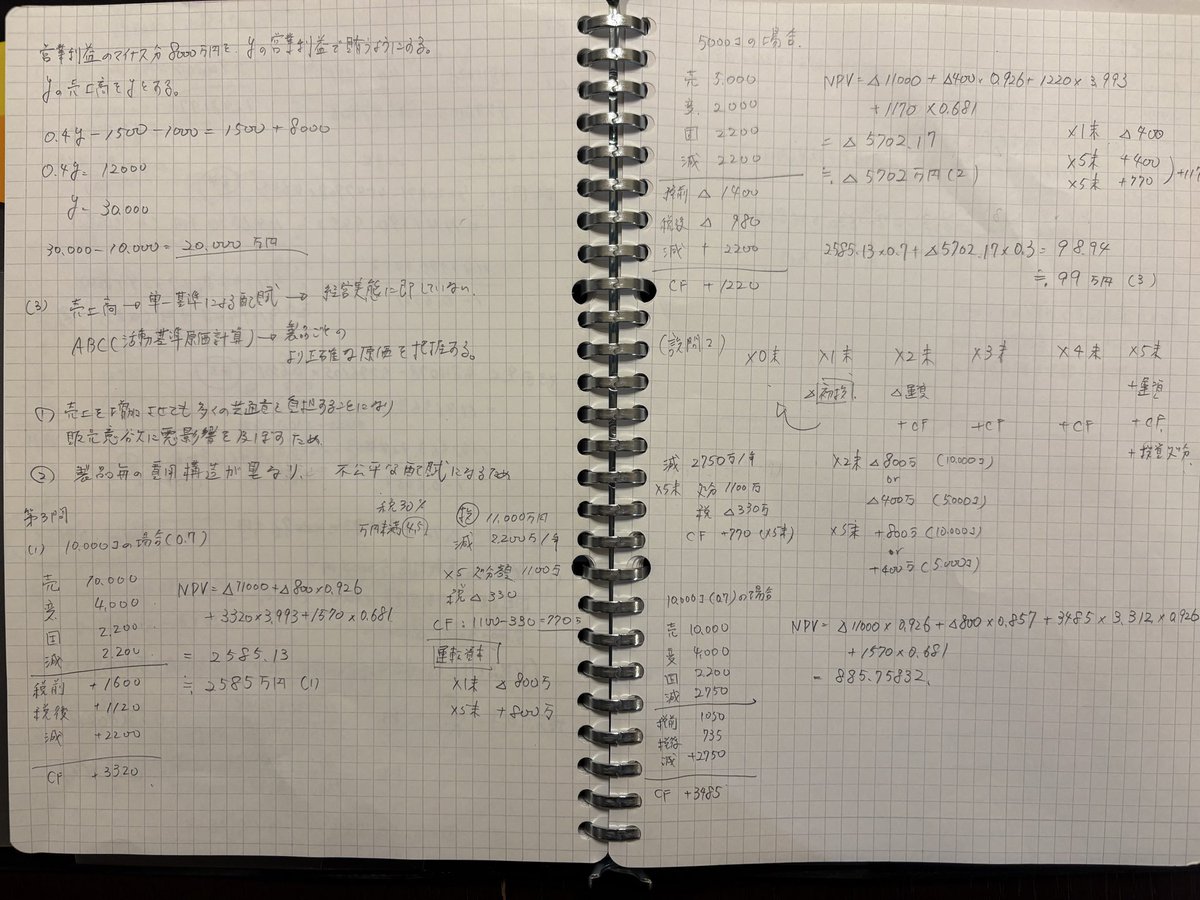 営業利益のマイナス分8000万円を、yの営業利益で賄うようにする。
yの売上高をyとする。
0.4y - 1500 - 1000 = 1500 + 8000
0.4y = 12000
y = 30.000
30.000 - 10.000 = 20.000 万円
(3) 売上高 → 単一基準による配賦 → 経営実態に即していない、
ABC(活動基準原価計算) → 製品ごとの
より正確な原価を把握する。
① 売上を増加させても多くの共通費を負担することになり
販売意欲に悪影響を及ぼすため
② 製品毎の費用構造が異なり、不公平な配賦になるため
第3問
税30%
万円未満(4,5)
(1) 10.000コの場合(0.7)
売 10.000
変 4,000
固 2.200
減 2.200
税前 +1600
税後 +1120
減 +2200
CF +3320
NPV = △11000 + △800 × 0.926
+ 3320 × 3,993 + 1570 × 0.681
= 2585.13
≒ 2585万円 (1)
投 11.000万円
減 2.200万/年
×5 処分額 1100万
税 △330
CF : 1100 - 330 = 770万
運転資本
×1末 △800万
×5末 +800万
5000コの場合.
売 5.000
変 2000
固 2200
減 2200
税前 △1400
税後 △980
減 +2200
CF +1220
NPV = △11000 + △400 × 0.926 + 1220 × 3,993
+ 1170 × 0.681
= △5702.17
≒ △5702万円(2)
×1末 △400
×5末 +400
×5末 +770
2585.13 × 0.7 + △5702.17 × 0.3 = 98.94
≒ 99万円 (3)
(設問2)
×0末 ×1末 ×2末 ×3末 ×4末 ×5末
△初投 △運資 +運資
+CF +CF +CF +CF
減 2750万/年
×5末 処分1100万
税 △330万
CF +770 (×5末)
×2末 △800万 (10.000コ)
or
△400万 (5000コ)
×5末 +800万(10.000コ)
or
+400万(5.000コ)
10,000コ(0.7)の場合
売 10.000
変 4000
固 2200
減 2750
税前 1050
税後 735
減 +2750
CF +3485
NPV = △11000 × 0.926 + △800 × 0.857 + 3485 × 3,312 × 0.926
+ 1570 × 0.681
= 885.75832